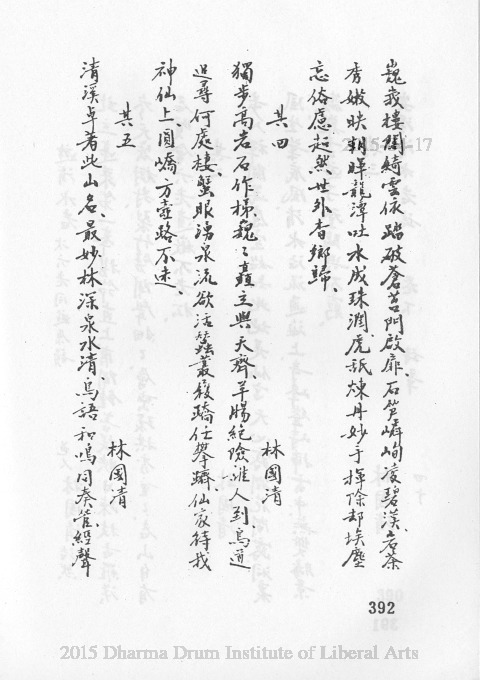 巍峩樓閣綺雲依、踏破蒼苔門啟扉、石笋嶙峋凌碧漢、岩茶
秀嫩映朝暉、龍潭吐水成珠潤、虎舐煉丹妙手揮、除却埃塵
忘俗慮、超然世外杳鄉歸、
其四
林國清
獨步高岩石作梯、巍々矗立與天齊、羊腸絕險誰人到、鳥道
追尋何處棲、蟹眼湧泉流欲活、蠶叢發蹻任攀躋、仙家待我
神仙上、圓嶠方壺路不迷、
其五
林國清
清溪卓著此山名、最妙林深泉水清、鳥語和鳴同奏管絃聲
392
2015-17
2015 Dharma Drum Institute of Liberal Arts